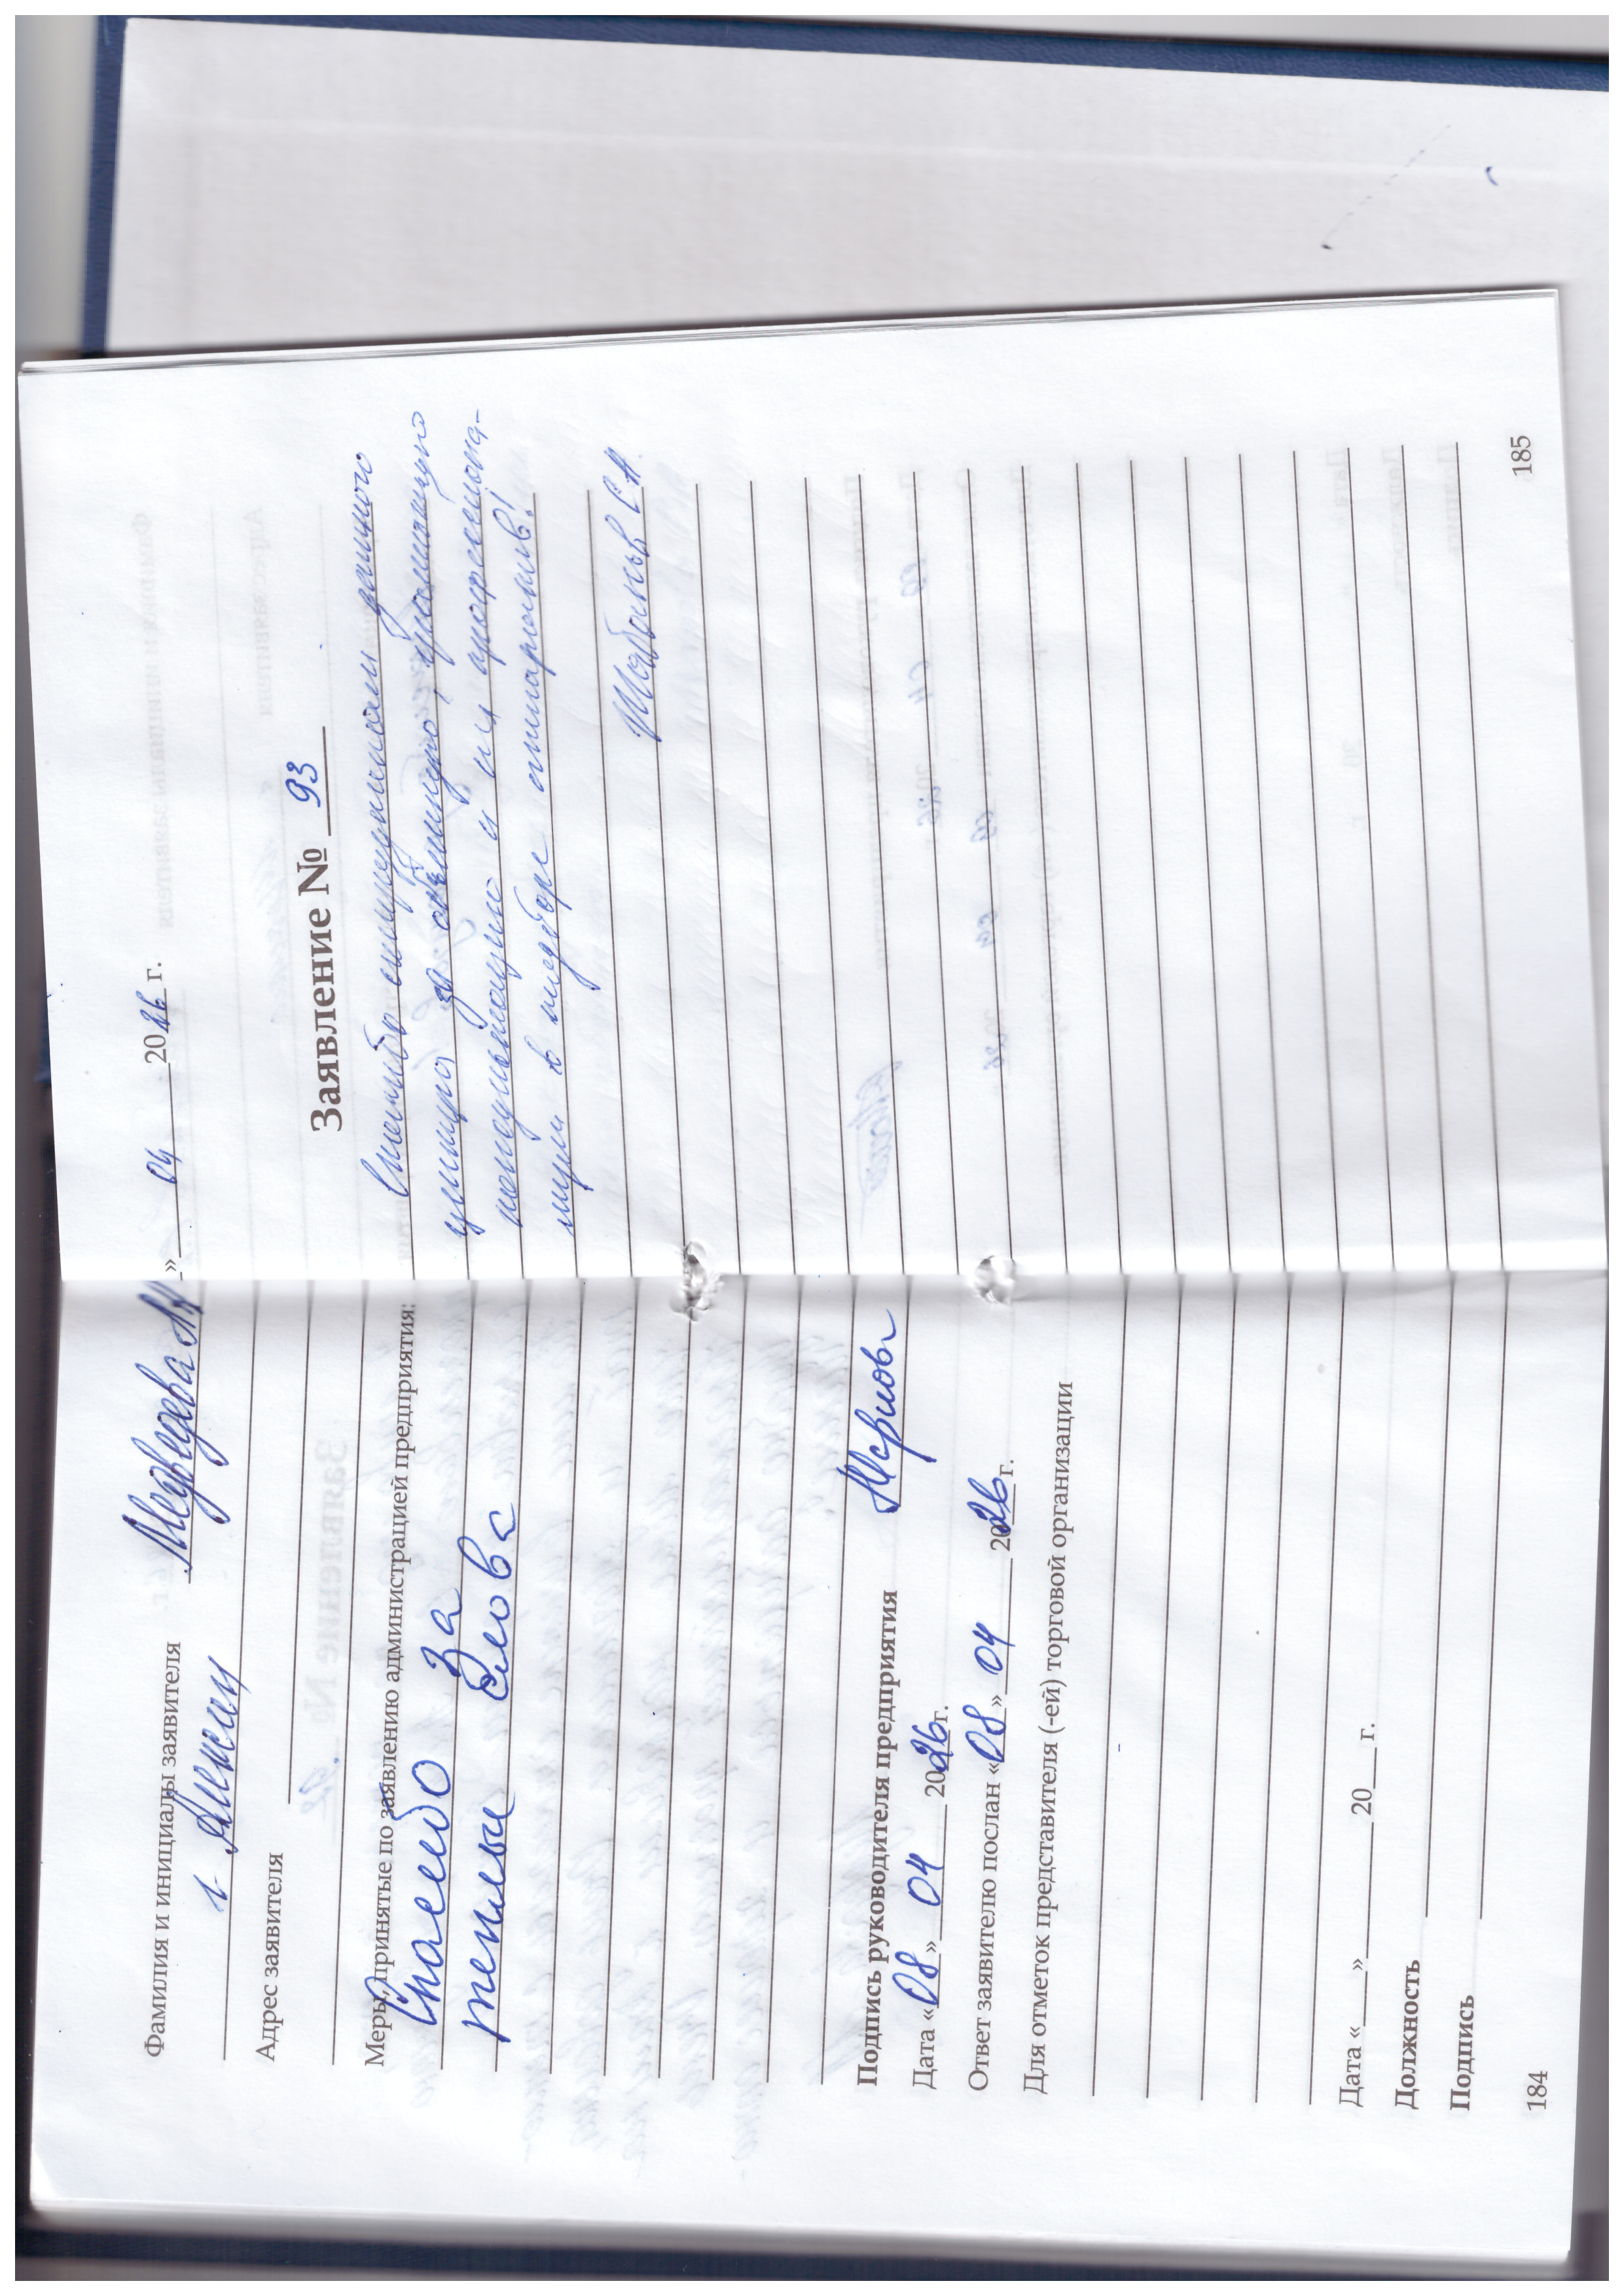 Фамилия и инициалы заявителя Медведева АН
г.
Адрес заявителя
Меры, принятые по заявлению администрацией предприятия:
Спасибо за
теплые слова
Подпись руководителя предприятия
Дата «08» 04 2026 г.
Ответ заявителю послан «08» 04 2026 г.
Для отметок представителя (-ей) торговой организации
Дата « » 20 г.
Должность
Подпись
184
» 04 2026 г.
Заявление № 93
Спасибо данного
центра за
консультацию и профессиона-
лизм в подборе
185